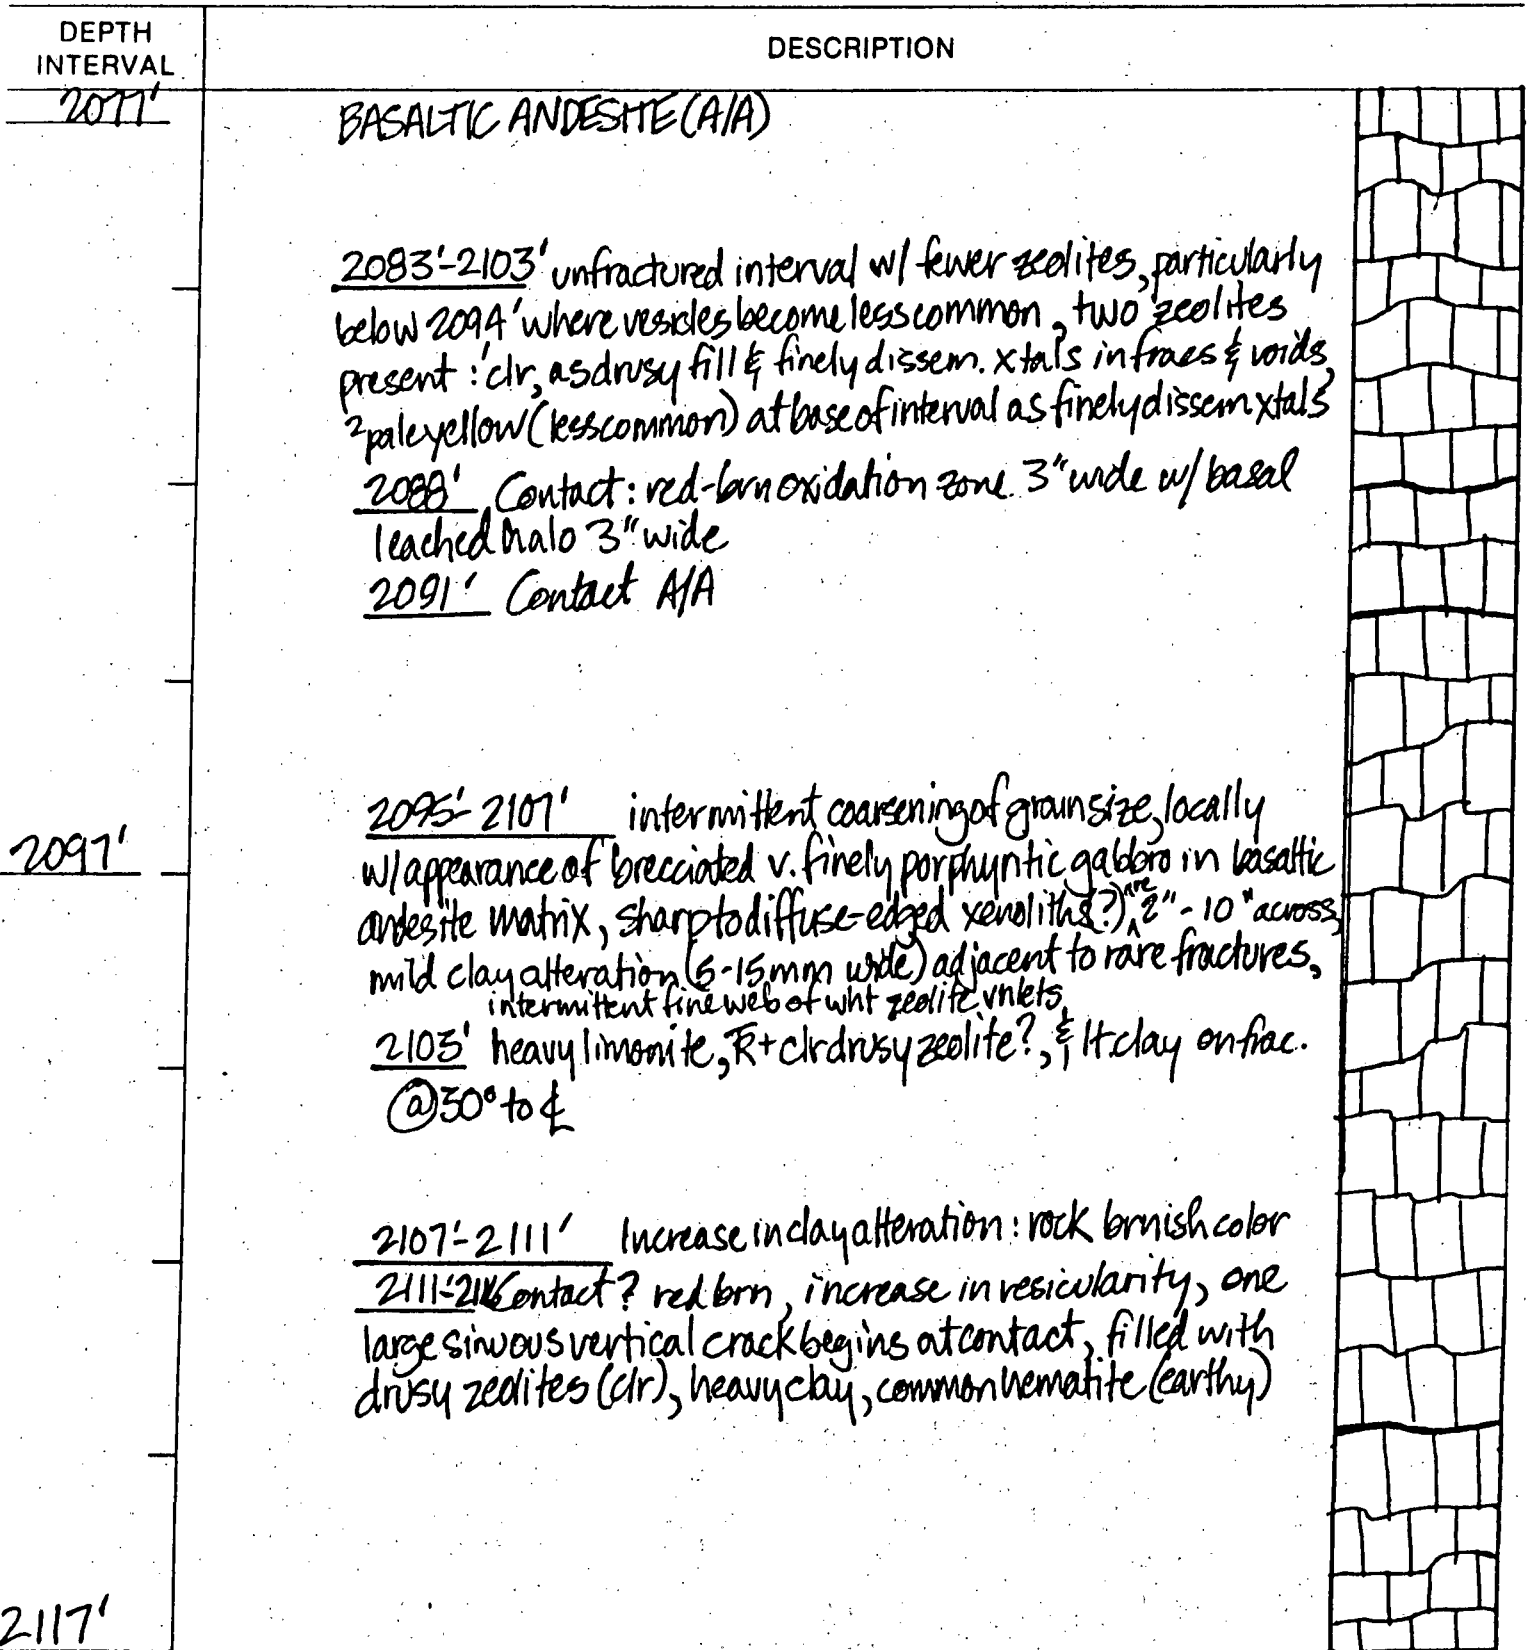 DEPTH INTERVAL
DESCRIPTION
2077'
BASALTIC ANDESITE (A/A)
2083'-2103' unfractured interval w/ fewer zeolites, particularly
below 2094' where vesicles become less common, two zeolites
present: ¹clr, as drusy fill & finely dissem. xtals in fracs & voids,
²pale yellow (less common) at base of interval as finely dissem xtals
2088' Contact: red-brn oxidation zone 3" wide w/ basal
leached halo 3" wide
2091' Contact A/A
2095'-2107' intermittent coarsening of grain size, locally
2097'
w/ appearance of brecciated v. finely porphyritic gabbro in basaltic
andesite matrix, sharp to diffuse-edged xenoliths(?) are 2"-10" across,
mild clay alteration (5-15mm wide) adjacent to rare fractures,
intermittent fine web of wht zeolite vnlets
2103' heavy limonite, + clr drusy zeolite?, & lt clay on frac.
@ 30° to ℄
2107'-2111' Increase in clay alteration: rock brnish color
2111'- Contact? red brn, increase in vesicularity, one
large sinuous vertical crack begins at contact, filled with
drusy zeolites (clr), heavy clay, common hematite (earthy)
2117'